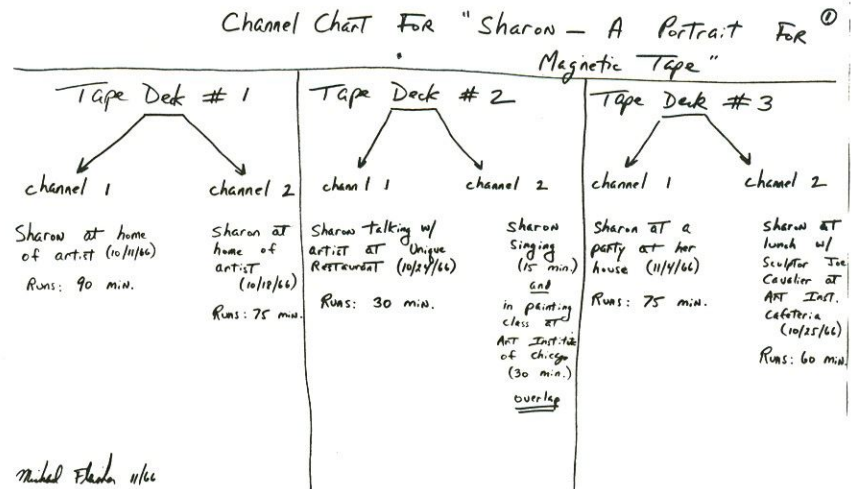 Channel Chart For "Sharon — A Portrait For ①
Magnetic Tape"
Tape Deck # 1
channel 1
Sharon at home
of artist (10/11/66)
Runs: 90 min.
channel 2
Sharon at
home of
artist
(10/18/66)
Runs: 75 min.
Tape Deck # 2
channl 1
Sharon talking w/
artist at Unique
Restaurant (10/24/66)
Runs: 30 min.
channel 2
Sharon
Singing
(15 min.)
and
in painting
class at
Art Institute
of chicago
(30 min.)
overlap
Tape Deck # 3
channel 1
Sharon at a
party at her
house (11/4/66)
Runs: 75 min.
channel 2
Sharon at
lunch w/
Sculptor Joe
Cavalier at
Art Inst.
Cafeteria
(10/25/66)
Runs: 60 min.
11/66